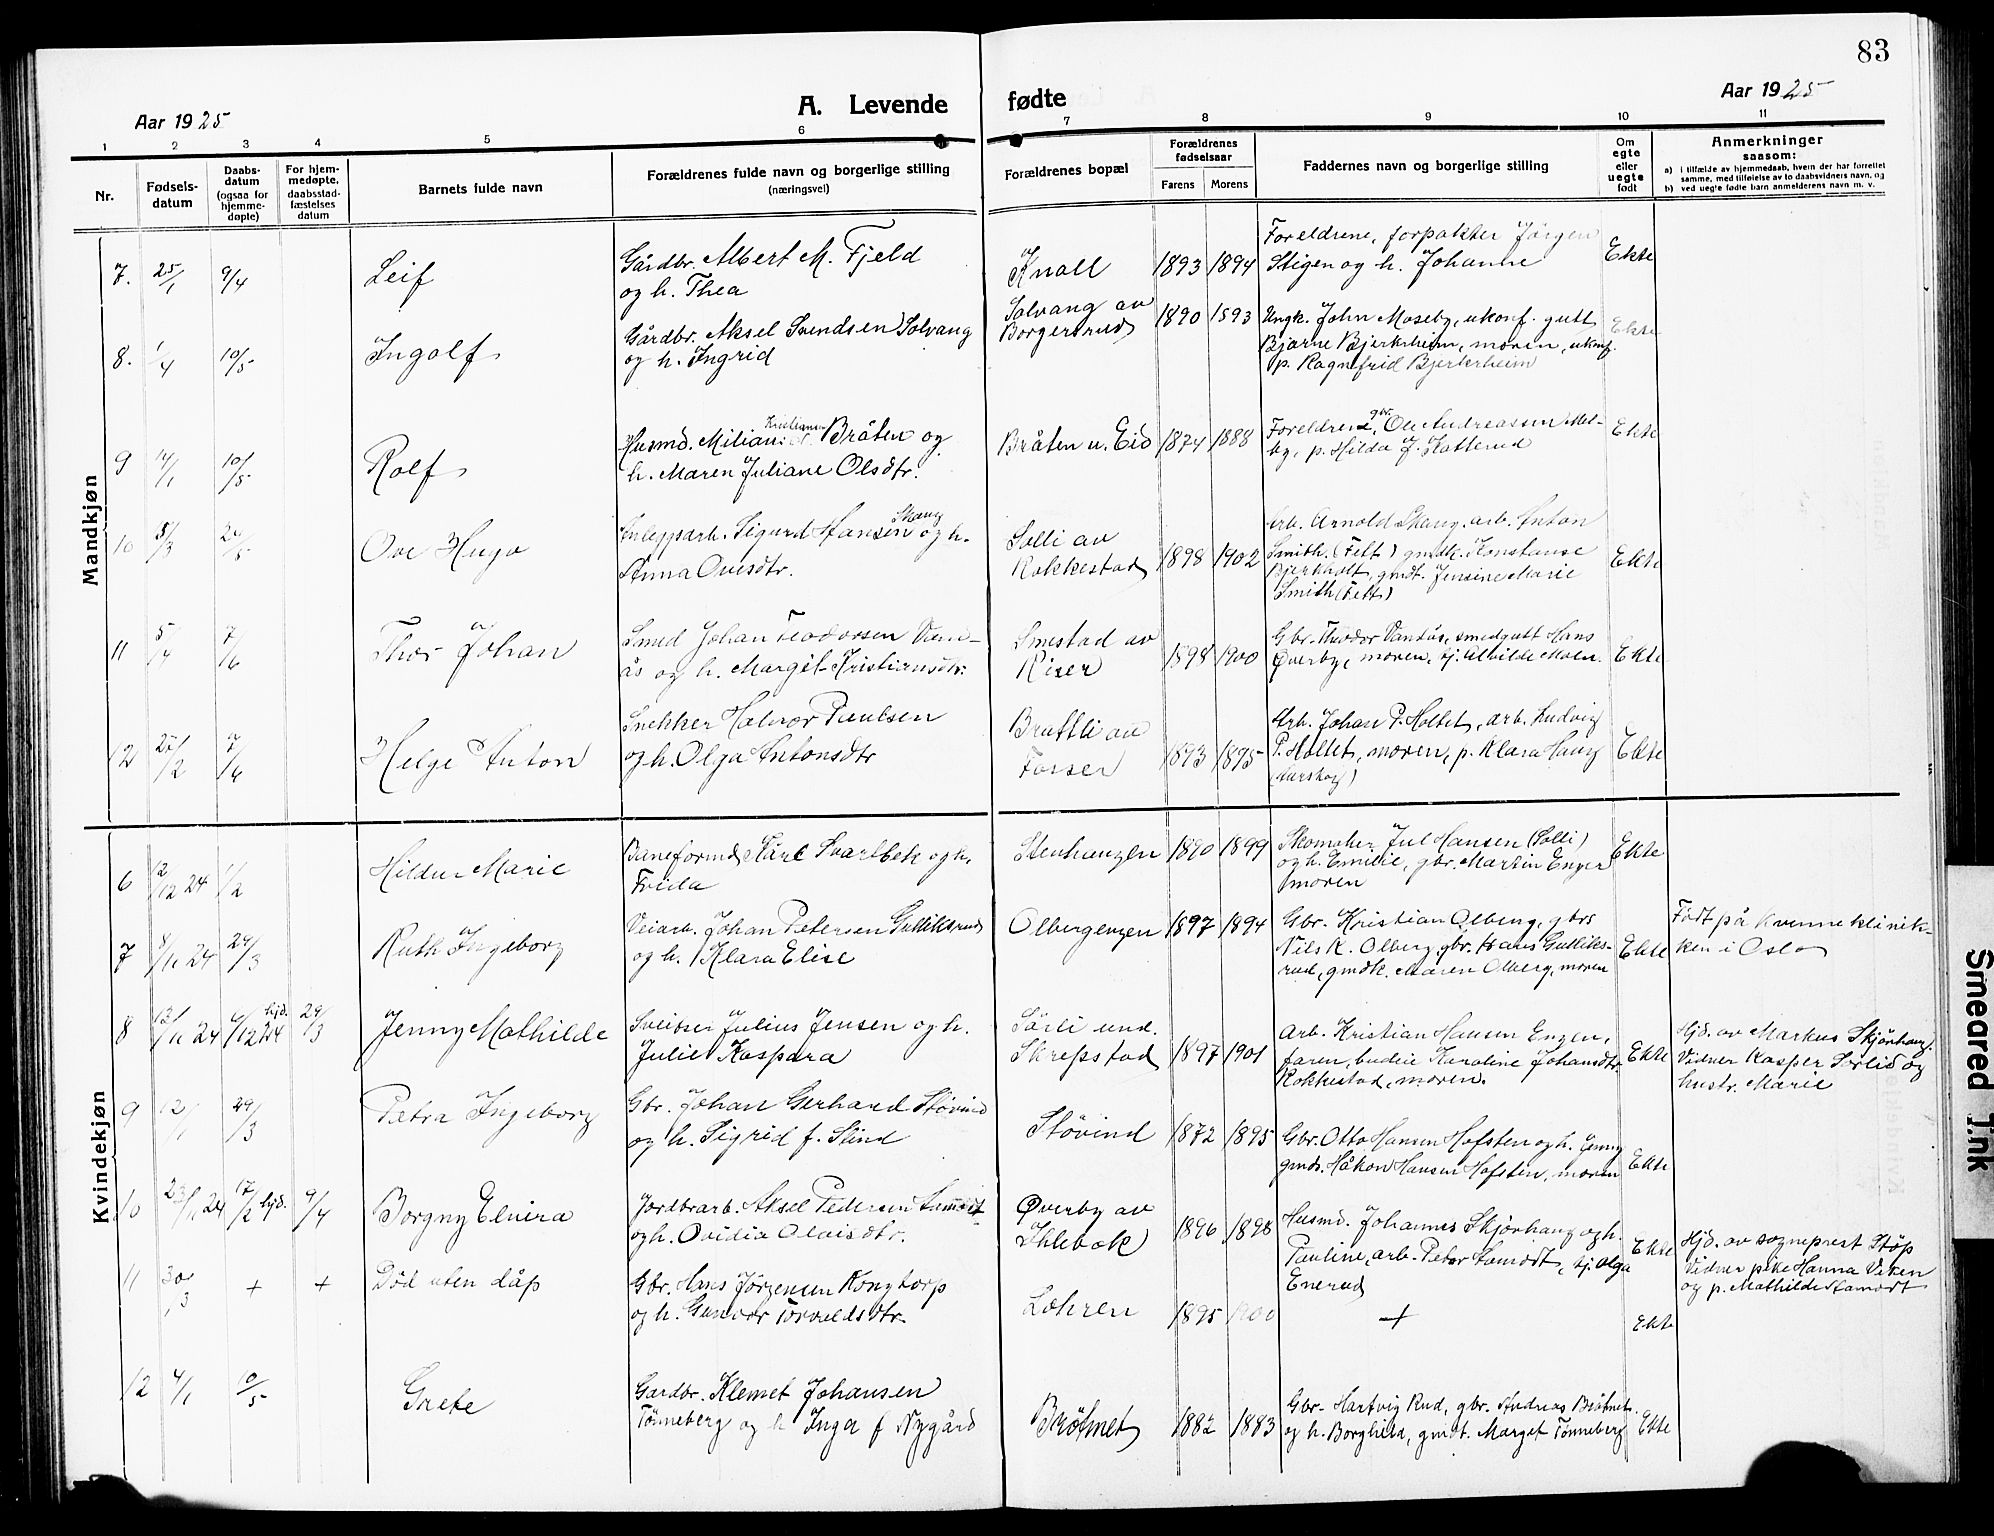 83
Aar 1925
A. Levende fødte
Aar 1925
1 2 3 4 5 6 7 8 9 10 11
Nr.
Fødselsdatum
Daabsdatum (ogsaa for hjemmedøpte)
For hjemmedøpte, daabsstadfæstelses datum
Barnets fulde navn
Forældrenes fulde navn og borgerlige stilling
(næringsvei)
Forældrenes bopæl
Forældrenes fødselsaar
Farens Morens
Faddernes navn og borgerlige stilling
Om egte eller uegte født
Anmerkninger
saasom:
a) i tilfælde av hjemmedaab, hvem der har forrettet
samme, med tilføielse av to daabsvidners navn, og
b) ved uegte fødte barn anmelderens navn m. v.
Mandkjøn
7. 25/1 9/4 Leif
Gårdbr. Albert M. Fjeld
og h. Thea
Knoll 1893 1894
Foreldrene, forpakter Jörgen
Stigen og h. Johanne
Ekte
8. 1/4 10/5 Ingolf
Gårdbr. Aksel Svendsen Solvang
og h. Ingrid
Solvang av
Borgersrud
1890 1893
Ungk. John Moseby, ukonf. gutt
Bjarne Bjerkrheim, moren, ukonf.
p. Ragnfrid Bjerkerheim
Ekte
9 14/1 10/5 Rolf
Kristiansen
Husmd. Milian Bråten og
h. Maren Juliane Olsdtr.
Bråten u. Eid 1874 1888
Foreldrene, gbr. Ole Andreassen Mel-
by, p. Hilda J. Katterud
Ekte
10 5/3 Ove Hugo
Skaug
Sigurd Hansen og h.
Anna Ovesdtr.
Solli av
Rokkestad
1898 1902
Arb. Arnold Skaug, arb. Anton
Smith (Felt) gmdk. Konstanse
Bjerkholt, gmdt. Jensine Marie
Smith (Felt)
Ekte
11 5/4 7/6 Thor Johan
Smed Johan Teodorsen Van-
ås og h. Margit Kristiansdtr.
Smestad av
Riser
1898 1900
Gbr. Theodor Vanås, smedgutt Hans
Øverby, moren, tj. Alvilde Moen.
Ekte
12 25/2 7/6 Helge Anton
Snekker Halvor Paulsen
og h. Olga Antonsdtr
Brattli av
Fosser
1893 1895
Arb. Johan P. Holtet, arb. Ludvig
P. Holtet, moren, p. Klara Haug
(Aurskog)
Ekte
Kvindekjøn
6 12/12 24 1/2 Hildur Marie
Baneformd. Kåre Svartbek og h.
Frida
Stenhaugen 1890 1899
Skomaker Jul Hansen (Solli)
og h. Emilie, gbr. Martin Enger
moren
Ekte
7 8/11 24 29/3 Ruth Ingeborg
Veiarb. Johan Petersen Gulliksrud
og h. Klara Elise
Olbergengen 1897 1894
Gbr. Kristian Olberg, gbrs
Nils K. Olberg, gbr. Hans Gulliks-
rud, gmdk. Maren Olberg, moren
Ekte
Født på kvinneklinik-
ken i Oslo
8 13/11 24 6/12 24 hjd. 29/3 Jenny Mathilde
Sveiser Julius Jensen og h.
Julie Kaspara
Sørli und.
Skrepstad
1897 1901
Arb. Kristian Hansen Engen,
faren, budeie Karoline Johansdtr.
Rokkestad, moren.
Ekte
Hjd. av Markus Skjönhaug.
Vidner Kasper Sørlid og
hustr. Marie
9 12/1 29/3 Petra Ingeborg
Gbr. Johan Gerhard Støvind
og h. Sigrid f. Stind
Støvind 1872 1895
Gbr. Otto Hansen Hofsten og h. Jenny
gmds. Håkon Hansen Hofsten, moren
Ekte
10 23/11 24 17/2 hjd. 9/4 Borgny Elvira
Jordbrarb. Aksel Pedersen Stamort
og h. Ovidia Olaisdtr.
Øverby av
Ihlebæk
1896 1898
Husmd. Johannes Skjönhaug og h.
Pauline, arb. Peter Stamort, tj. Olga
Enerud
Ekte
Hjd. av sogneprest Støp
Vidner pike Hanna Viken
og p. Mathilde Stamort
11 30/3 + + Død uten dåp
Gbr. Hans Jørgensen Kongtorp
og h. Gunvor Torvaldsdtr.
Løkren 1895 1900
+
Ekte
12 4/1 10/5 Grete
Gardbr. Klemet Johansen
Tønneberg og h Inga f Nygård
Bråtnet 1882 1883
Gbr- Hartvig Rud, gbr. Andreas Bråtnet
og h. Borghild, gmdt. Marget Tønneberg
Ekte
Smeared Ink